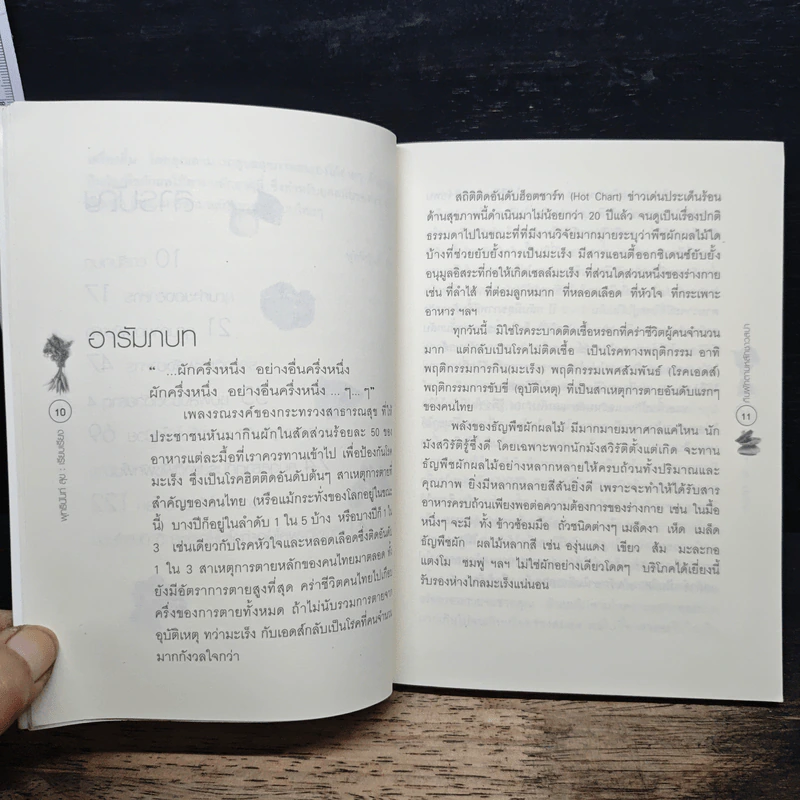 อารัมภบท
“ ...ผักครึ่งหนึ่ง อย่างอื่นครึ่งหนึ่ง
ผักครึ่งหนึ่ง อย่างอื่นครึ่งหนึ่ง ... ๆ...ๆ”
เพลงรณรงค์ของกระทรวงสาธารณสุข ที่ให้
ประชาชนหันมากินผักในสัดส่วนร้อยละ 50 ของ
อาหารแต่ละมื้อที่เราควรทานเข้าไป เพื่อป้องกันโรค
มะเร็ง ซึ่งเป็นโรคฮิตติดอันดับต้นๆ สาเหตุการตาย
สำคัญของคนไทย (หรือแม้กระทั่งของโลกอยู่ในขณะ
นี้) บางปีก็อยู่ในลำดับ 1 ใน 5 บ้าง หรือบางปีก็ 1 ใน
3 เช่นเดียวกับโรคหัวใจและหลอดเลือดซึ่งติดอันดับ
1 ใน 3 สาเหตุการตายหลักของคนไทยมาตลอด ทั้ง
ยังมีอัตราการตายสูงที่สุด คร่าชีวิตคนไทยไปเกือบ
ครึ่งของการตายทั้งหมด ถ้าไม่นับรวมการตายจาก
อุบัติเหตุ ทว่ามะเร็ง กับเอดส์กลับเป็นโรคที่คนจำนวน
มากกังวลใจกว่า
10
สถิติติดอันดับฮ็อตชาร์ท (Hot Chart) ข่าวเด่นประเด็นร้อน
ด้านสุขภาพนี้ดำเนินมาไม่น้อยกว่า 20 ปีแล้ว จนดูเป็นเรื่องปกติ
ธรรมดาไปในขณะที่ที่มีงานวิจัยมากมายระบุว่าพืชผักผลไม้ใด
บ้างที่ช่วยยับยั้งการเป็นมะเร็ง มีสารแอนตี้ออกซิเดนซ์ยับยั้ง
อนุมูลอิสระที่ก่อให้เกิดเซลล์มะเร็ง ที่ส่วนใดส่วนหนึ่งของร่างกาย
เช่น ที่ลำไส้ ที่ต่อมลูกหมาก ที่หลอดเลือด ที่หัวใจ ที่กระเพาะ
อาหาร ฯลฯ
ทุกวันนี้ มิใช่โรคระบาดติดเชื้อหรอกที่คร่าชีวิตผู้คนจำนวน
มาก แต่กลับเป็นโรคไม่ติดเชื้อ เป็นโรคทางพฤติกรรม อาทิ
พฤติกรรมการกิน(มะเร็ง) พฤติกรรมเพศสัมพันธ์ (โรคเอดส์)
พฤติกรรมการขับขี่ (อุบัติเหตุ) ที่เป็นสาเหตุการตายอันดับแรกๆ
ของคนไทย
พลังของธัญพืชผักผลไม้ มีมากมายมหาศาลแค่ไหน นัก
มังสวิรัติรู้ซึ้งดี โดยเฉพาะพวกนักมังสวิรัติตั้งแต่เกิด จะทาน
ธัญพืชผักผลไม้อย่างหลากหลายให้ครบถ้วนทั้งปริมาณและ
คุณภาพ ยิ่งมีหลากหลายสีสันยิ่งดี เพราะจะทำให้ได้รับสาร
อาหารครบถ้วนเพียงพอต่อความต้องการของร่างกาย เช่น ในมื้อ
หนึ่งๆ จะมี ทั้ง ข้าวซ้อมมือ ถั่วชนิดต่างๆ เมล็ดงา เห็ด เมล็ด
ธัญพืชผัก ผลไม้หลากสี เช่น องุ่นแดง เขียว ส้ม มะละกอ
แตงโม ชมพู่ ฯลฯ ไม่ใช่ผักอย่างเดียวโดดๆ บริโภคได้เยี่ยงนี้
รับรองห่างไกลมะเร็งแน่นอน
11